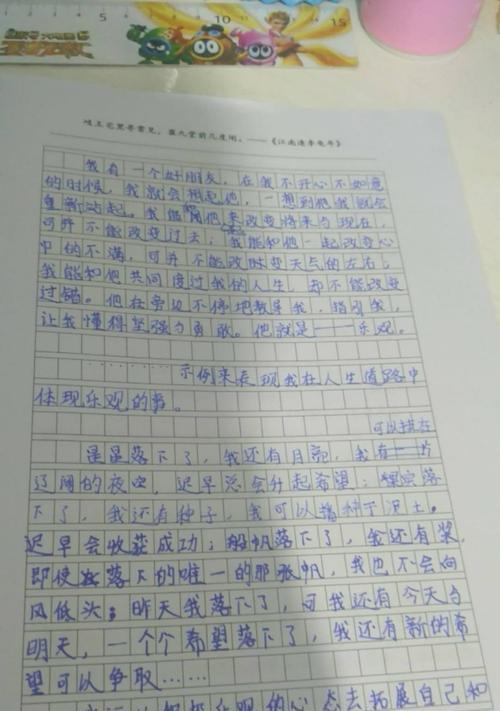 5 10 15
岐王宅里寻常见，崔九堂前几度闻。——《江南逢李龟年》
我有一个好朋友，在我不开心不如意
的时候，我就会想起他，一想到他我就会
重新动起。我能用他来改变将来与现在，
可并不能改变过去；我能和他一起改变心
中的不满，可并不能改变天气的左右；
我能和他共同度过我的人生，却不能改变
过错。他在旁边不停地教导我，指引我，
让我懂得坚强与勇敢。他就是——乐观。
………示例来表现我在人生道路中
体现乐观的事。
可以挂在
星星落下了，我还有月亮，我有一片
辽阔的夜空，迟早总会升起希望；果实落
下了，我还有种子，我可以播种于泥土。
迟早会收获成功；船帆落下了，我还有桨，
即使落下的唯一的那张帆，我也不会向
风低头；昨天我落下了，可我还有今天与
明天，一个个希望落下了，我还有新的希
望可以争取……
乐观的心态去拓展自己和